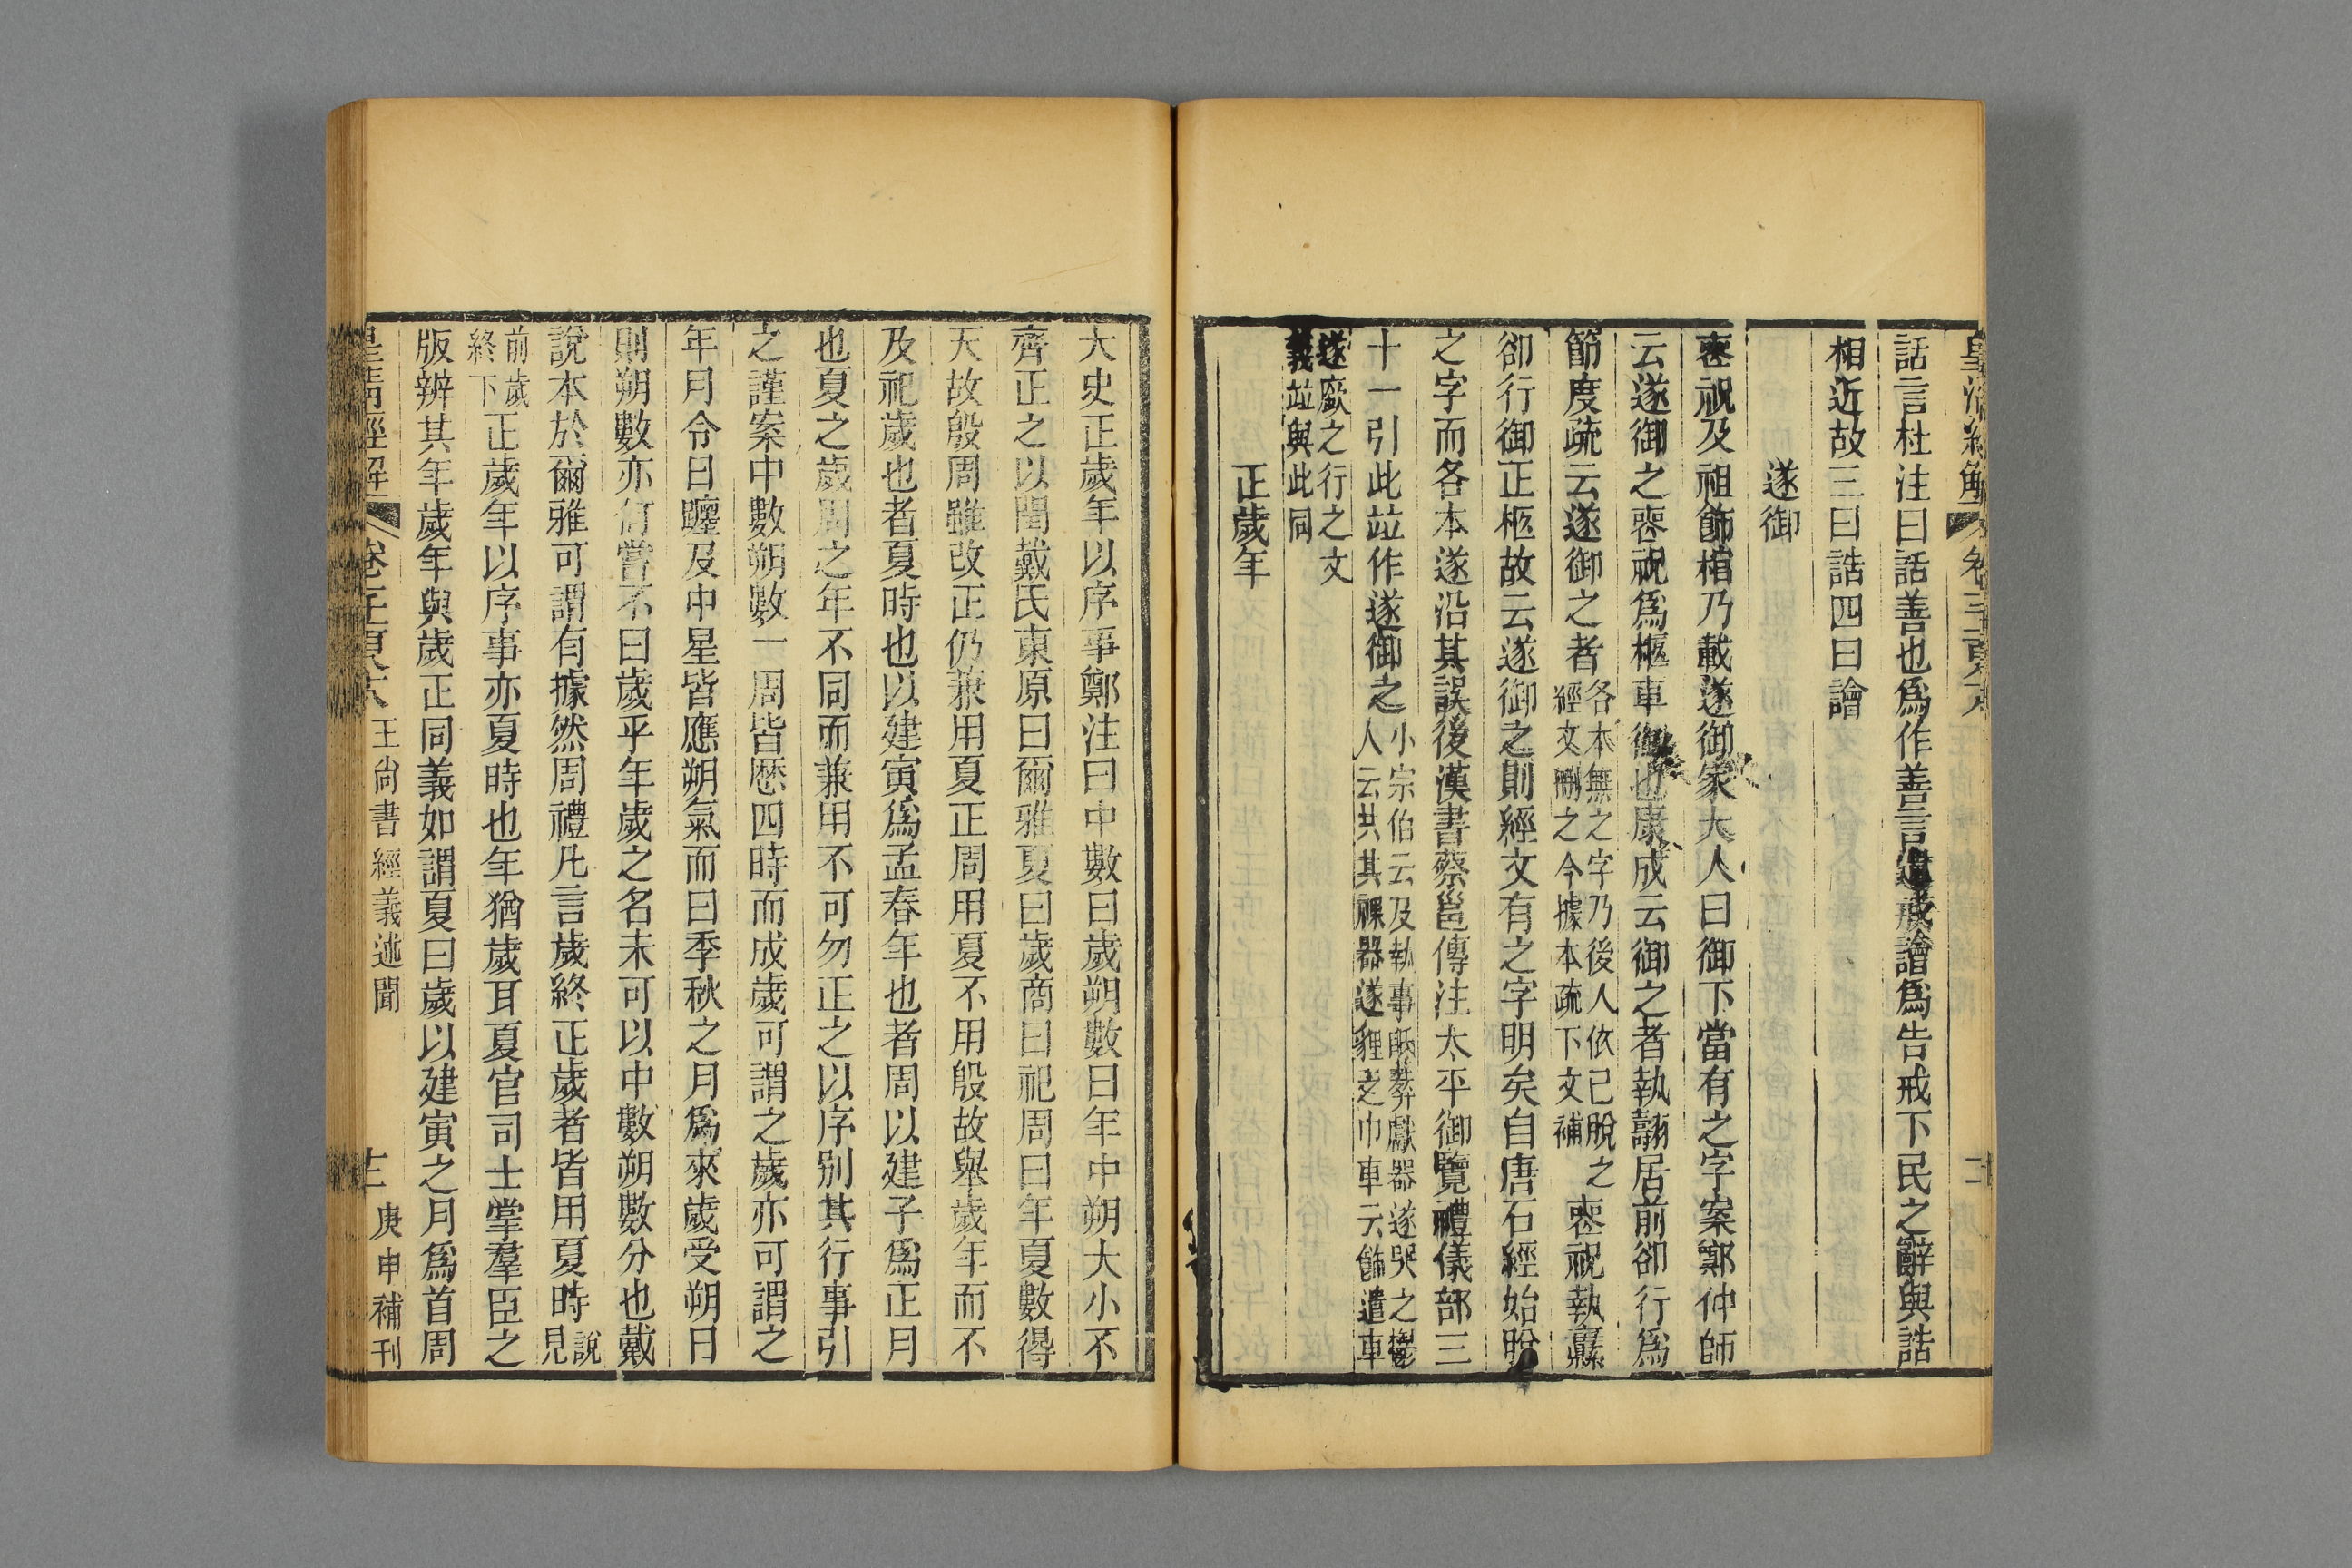 話言杜注曰話善也爲作善言遺戒譮爲告戒下民之辭與誥
相近故三曰誥四曰譮
遂御
喪祝及祖飾棺乃載遂御家大人曰御下當有之字案鄭仲師
云遂御之喪祝爲柩車御也康成云御之者執翿居前卻行爲
節度疏云遂御之者
各本無之字乃後人依已脫之
經文刪之今據本疏下文補
喪祝執纛
卻行御正柩故云遂御之則經文有之字明矣自唐石經始脫
之字而各本遂沿其誤後漢書蔡邕傳注太平御覽禮儀部三
十一引此竝作遂御之
小宗伯云及執事眡葬獻器遂哭之鬱
人云共其祼器遂貍之巾車云飾遣車
遂廞之行之文
義竝與此同
正歲年
大史正歲年以序事鄭注曰中數曰歲朔數曰年中朔大小不
齊正之以閏戴氏東原曰爾雅夏曰歲商曰祀周曰年夏數得
天故殷周雖改正仍兼用夏正周用夏不用殷故舉歲年而不
及祀歲也者夏時也以建寅爲孟春年也者周以建子爲正月
也夏之歲周之年不同而兼用不可勿正之以序別其行事引
之謹案中數朔數一周皆歴四時而成歲可謂之歲亦可謂之
年月令曰躔及中星皆應朔氣而曰季秋之月爲來歲受朔日
則朔數亦何嘗不曰歲乎年歲之名未可以中數朔數分也戴
說本於爾雅可謂有據然周禮凡言歲終正歲者皆用夏時
說
見
前歲
終下
正歲年以序事亦夏時也年猶歲耳夏官司士掌羣臣之
版辨其年歲年與歲正同義如謂夏曰歲以建寅之月爲首周
皇清經解 卷 王尙書經義述聞 庚申補刊